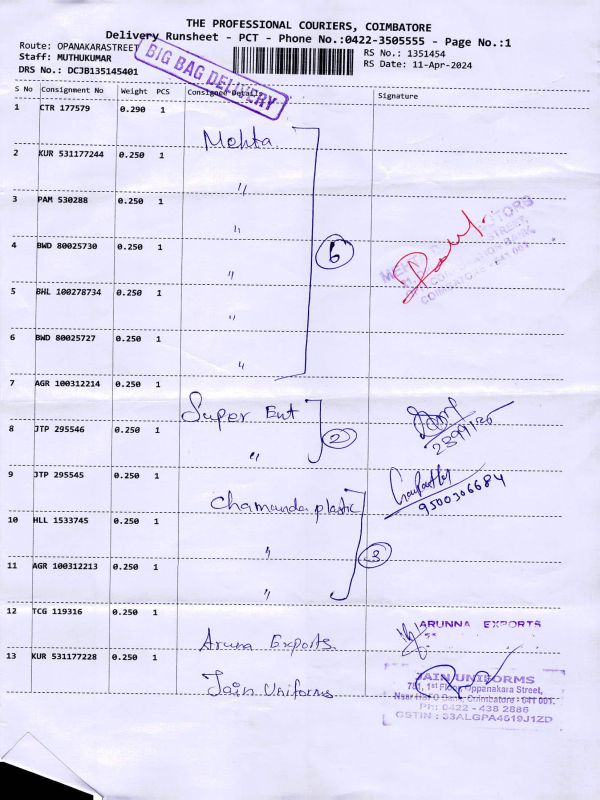 THE PROFESSIONAL COURIERS, COIMBATORE
Delivery Runsheet - PCT - Phone No.:0422-3505555 - Page No.:1
Route: OPANAKARASTREET
RS No.: 1351454
Staff: MUTHUKUMAR
RS Date: 11-Apr-2024
DRS No.: DCJB135145401
BIG BAG DELIVERY
S No Consignment No Weight PCS Consignee Details Signature
1 CTR 177579 0.290 1 Mehta
2 KUR 531177244 0.250 1 "
3 PAM 530288 0.250 1 "
4 BWD 80025730 0.250 1 "
6
5 BHL 100278734 0.250 1 "
6 BWD 80025727 0.250 1 "
7 AGR 100312214 0.250 1 Super Ent
8 JTP 295546 0.250 1 "
2
9 JTP 295545 0.250 1 Chamunda plastic
9500306684
10 HLL 1533745 0.250 1 "
3
11 AGR 100312213 0.250 1 "
12 TCG 119316 0.250 1 Aruna Exports
ARUNNA EXPORTS
13 KUR 531177228 0.250 1 Jain Uniforms
JAIN UNIFORMS
781, 1st Floor, Oppanakara Street,
Near HDFC Bank, Coimbatore - 641 001.
Ph: 0422 - 438 2886
GSTIN : 33ALGPA4619J1ZD